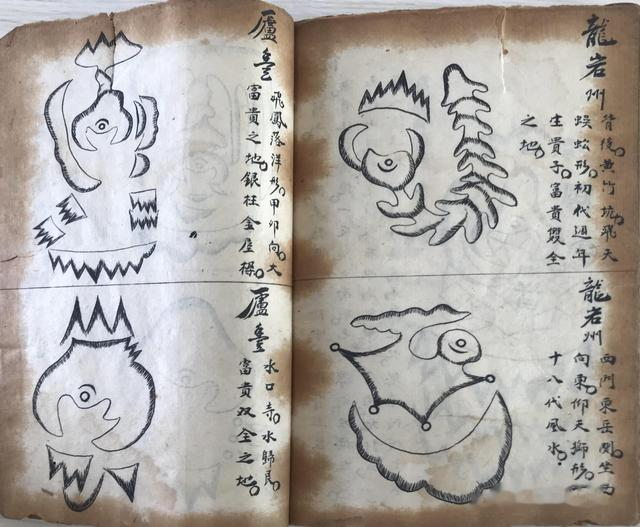 龍岩州
背後黃竹坑飛天
蜈蚣形初代過年
生貴子富貴雙全
之地
龍岩州
西門東岳閣坐西
向東仰天獅形一
十八代風水
廬豊
飛鳳落洋形甲卯向大
富貴之地銀柱金屋樑
廬豊
水口寺水歸艮
富貴双全之地